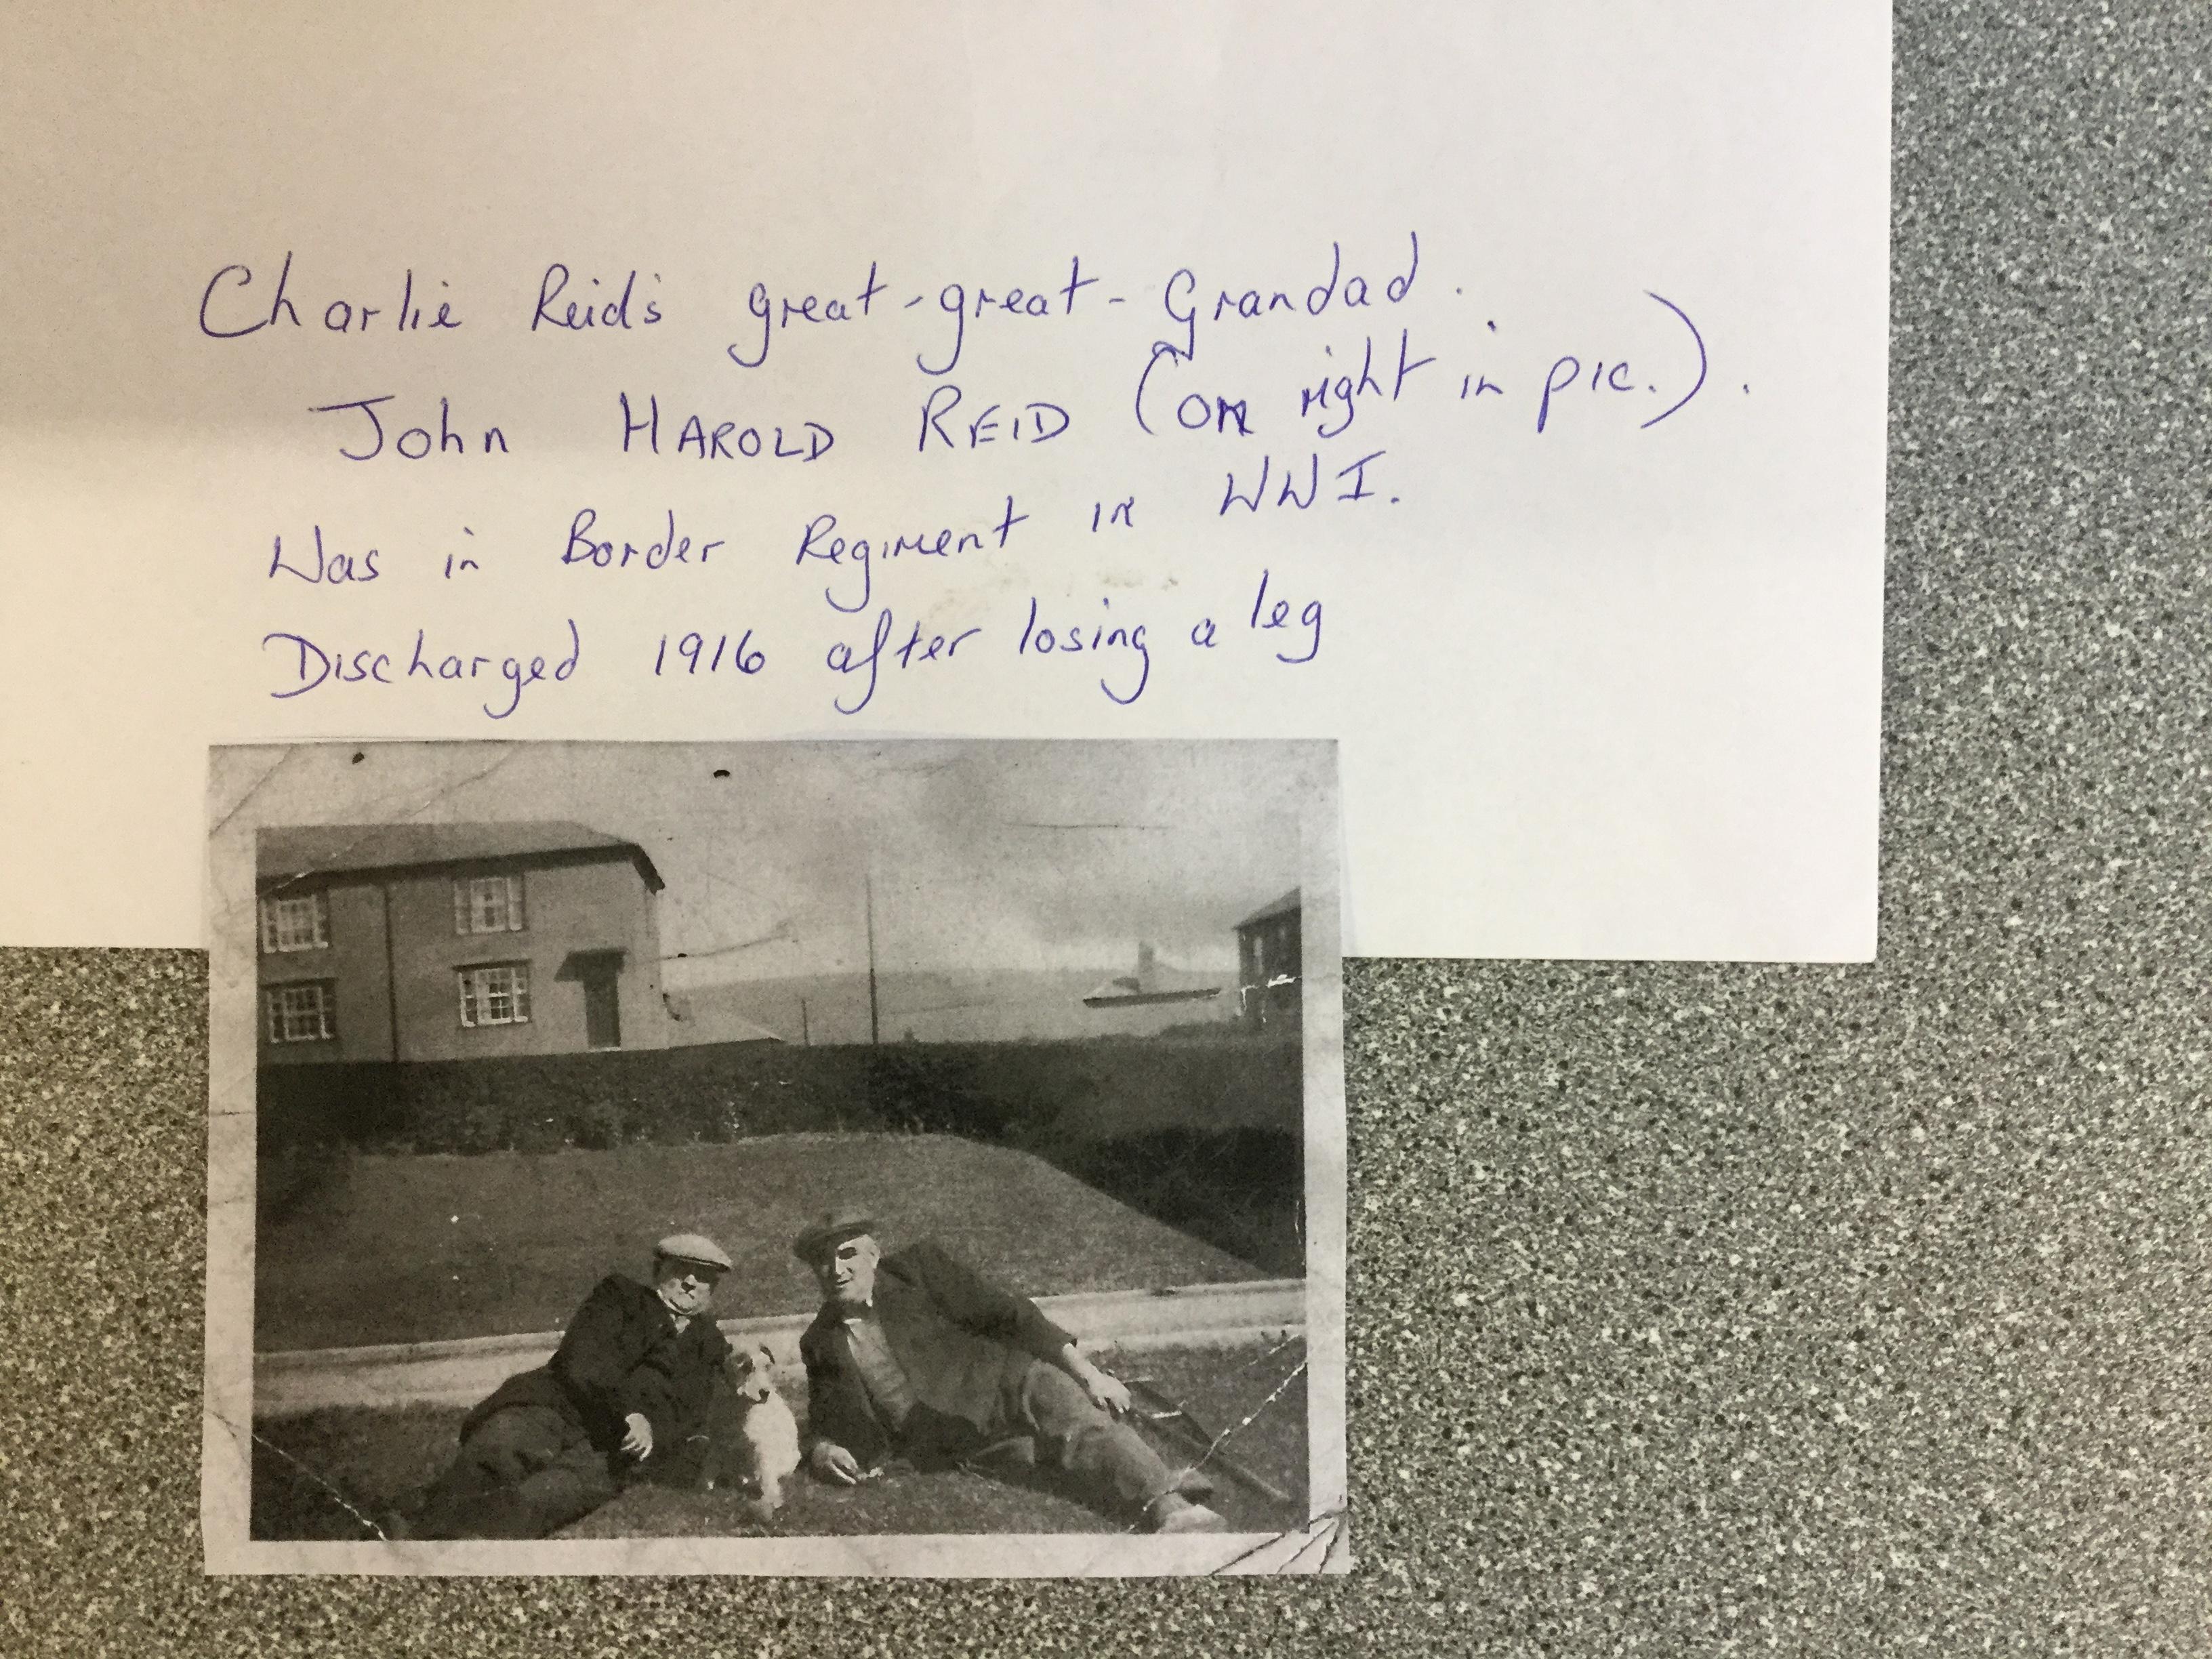 Charlie Reid's great-great-Grandad.
John HAROLD REID (on right in pic.).
Was in Border Regiment in WWI.
Discharged 1916 after losing a leg